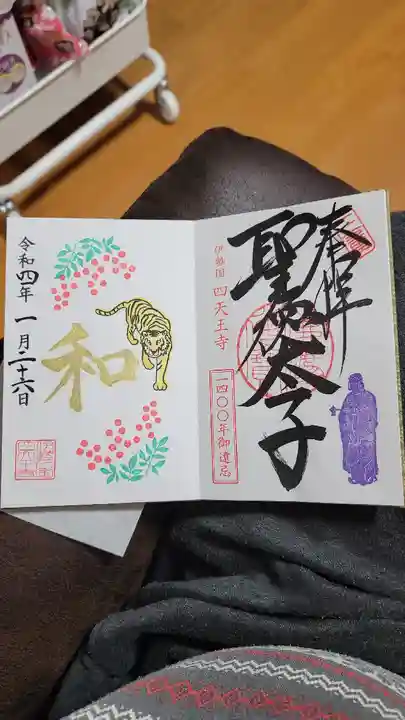 奉拝
聖徳太子
伊勢国 四天王寺
一四〇〇年御遠忌
和
令和四年 一月二十六日